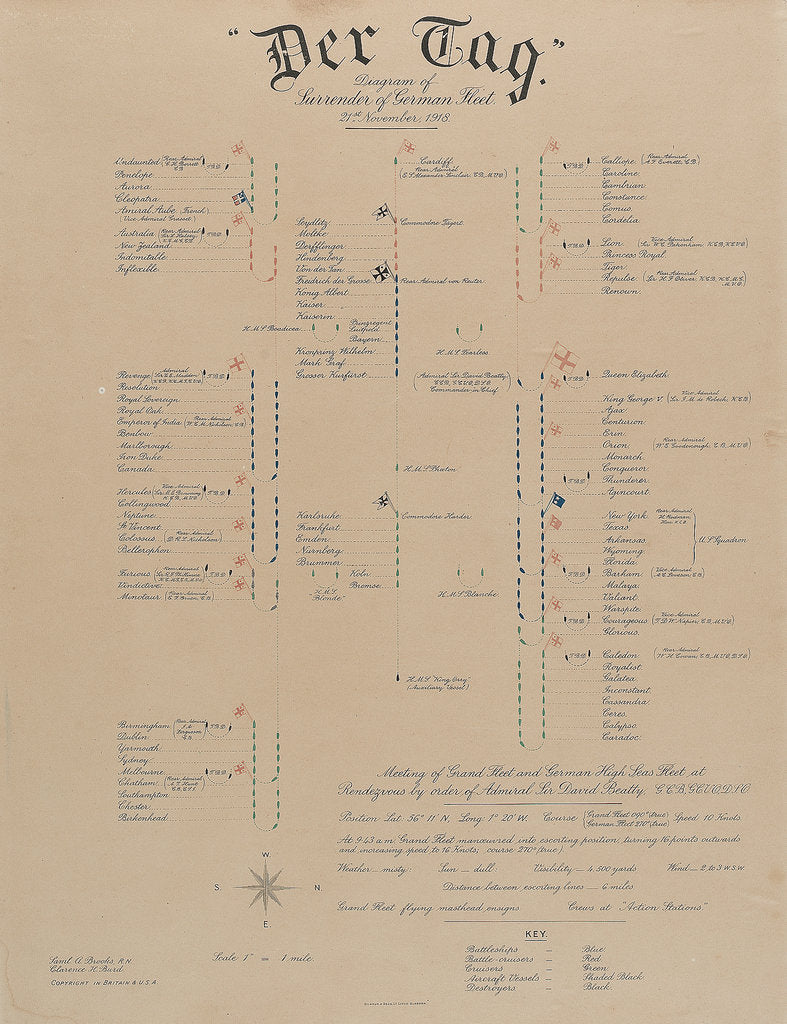 "Der Tag."
Diagram of
Surrender of German Fleet.
21st November, 1918.
Undaunted (Rear Admiral
C.B.
T.B.D.
Penelope
Aurora
Cleopatra
Amiral Aube (French)
(Vice Admiral Grasset)
Australia (Rear Admiral
Sir L. Halsey
T.B.D.
New Zealand
Indomitable
Inflexible
Cardiff
Rear Admiral
(E.S. Alexander-Sinclair, C.B., M.V.O.)
Seydlitz
Commodore Tägert
Moltke
Derfflinger
Hindenberg
Von der Tan
Freidrich der Grosse
Rear Admiral von Reuter
König Albert
Kaiser
Kaiserin
H.M.S. Boadicea
Prinzregent
Luitpold
Bayern
H.M.S. Fearless
Kronprinz Wilhelm
Mark Graf
Grosser Kurfürst
(Admiral Sir David Beatty
G.C.B., G.C.V.O., D.S.O.
Commander-in-Chief)
T.B.D.
Calliope (Rear Admiral
A.F. Everett, C.B.)
Caroline
Cambrian
Constance
Comus
Cordelia
T.B.D.
Lion (Vice Admiral
Sir W.C. Pakenham, K.C.B., K.C.V.O.)
Princess Royal
Tiger
Repulse (Rear Admiral
Sir H.F. Oliver, K.C.B., K.C.M.G.,
M.V.O.)
Renown
Revenge (Admiral
Sir C.E. Madden
T.B.D.
Resolution
Royal Sovereign
Royal Oak
Emperor of India (Rear Admiral
Benbow
Marlborough
Iron Duke
Canada
Hercules (Vice Admiral
T.B.D.
Collingwood
Neptune
St Vincent
Colossus (Rear Admiral
Bellerophon
Furious (Rear Admiral
T.B.D.
Vindictive
Minotaur (Rear Admiral
H.M.S. Phaeton
Karlsruhe
Commodore Harder
Frankfurt
Emden
Nürnberg
Brummer
Köln
Bremse
H.M.S.
"Blonde"
H.M.S. Blanche
H.M.S. "King Orry"
(Auxiliary Vessel)
T.B.D.
Queen Elizabeth
King George V. (Vice Admiral
Sir J.M. de Robeck, K.C.B.)
Ajax
Centurion
Erin
Orion (Rear Admiral
W.E. Goodenough, C.B., M.V.O.)
Monarch
Conqueror
T.B.D.
Thunderer
Agincourt
New York (Rear Admiral
H. Rodman,
Hon. K.C.B.
Texas
Arkansas
Wyoming
Florida
U.S. Squadron
T.B.D.
Barham (Vice Admiral
A.C. Leveson, C.B.)
Malaya
Valiant
Warspite
T.B.D.
Courageous (Vice Admiral
T.D.W. Napier, C.B., M.V.O.)
Glorious
T.B.D.
Caledon (Rear Admiral
W.H. Cowan, C.B., M.V.O., D.S.O.)
Royalist
Galatea
Inconstant
Cassandra
Ceres
Calypso
Caradoc
Birmingham (Rear Admiral
J.A.
Fergusson
C.B.
T.B.D.
Dublin
Yarmouth
Sydney
Melbourne
T.B.D.
Chatham (Rear Admiral
Southampton
Chester
Birkenhead
Meeting of Grand Fleet and German High Seas Fleet at
Rendezvous by order of Admiral Sir David Beatty, G.C.B., G.C.V.O., D.S.O.
Position Lat. 56° 11' N, Long. 1° 20' W. Course (Grand Fleet 090° (true)
German Fleet 270° (true)) Speed 10 Knots
At 9.43 a.m. Grand Fleet manœuvred into escorting position, turning 16 points outwards
and increasing speed to 16 Knots; course 270° (true).
Weather – misty: Sun – dull: Visibility – 4,500 yards Wind – 2 to 3 W.S.W.
Distance between escorting lines – 6 miles.
Grand Fleet flying masthead ensigns Crews at "Action Stations"
W.
S.
N.
E.
Scale 1" = 1 mile.
KEY.
Battleships – Blue.
Battle-cruisers – Red.
Cruisers – Green.
Aircraft Vessels – Shaded Black.
Destroyers – Black.
Saml. A. Brooks, R.N.
Clarence H. Burd.
COPYRIGHT IN BRITAIN & U.S.A.